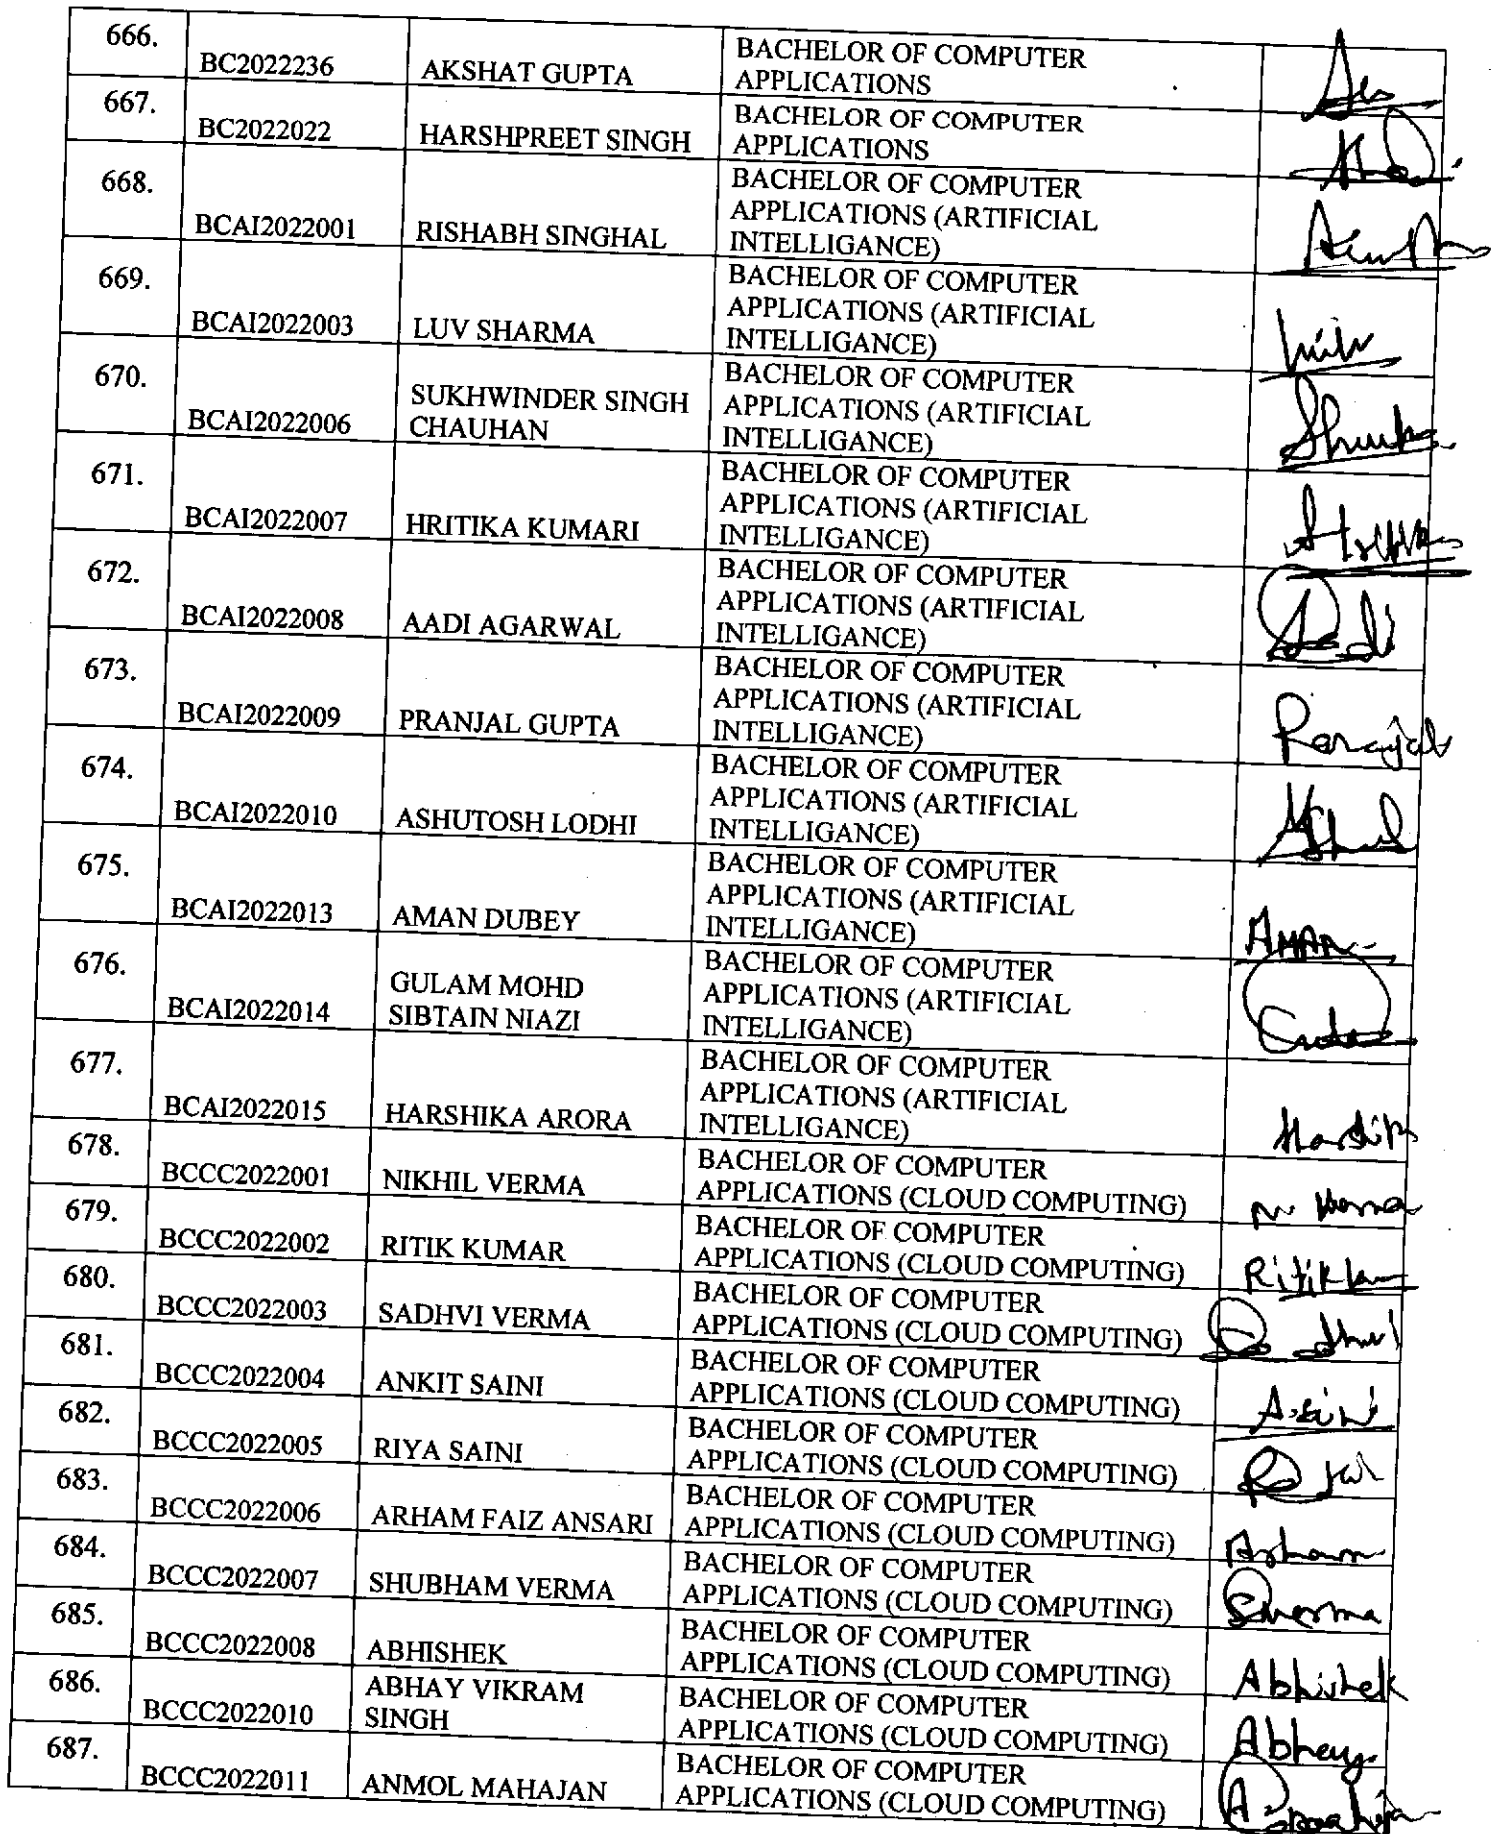 666.
BC2022236 AKSHAT GUPTA BACHELOR OF COMPUTER
APPLICATIONS
667.
BC2022022 HARSHPREET SINGH BACHELOR OF COMPUTER
APPLICATIONS
668.
BCAI2022001 RISHABH SINGHAL BACHELOR OF COMPUTER
APPLICATIONS (ARTIFICIAL
INTELLIGANCE)
669.
BCAI2022003 LUV SHARMA BACHELOR OF COMPUTER
APPLICATIONS (ARTIFICIAL
INTELLIGANCE)
670.
BCAI2022006 SUKHWINDER SINGH
CHAUHAN BACHELOR OF COMPUTER
APPLICATIONS (ARTIFICIAL
INTELLIGANCE)
671.
BCAI2022007 HRITIKA KUMARI BACHELOR OF COMPUTER
APPLICATIONS (ARTIFICIAL
INTELLIGANCE)
672.
BCAI2022008 AADI AGARWAL BACHELOR OF COMPUTER
APPLICATIONS (ARTIFICIAL
INTELLIGANCE)
Aadi
673.
BCAI2022009 PRANJAL GUPTA BACHELOR OF COMPUTER
APPLICATIONS (ARTIFICIAL
INTELLIGANCE)
674.
BCAI2022010 ASHUTOSH LODHI BACHELOR OF COMPUTER
APPLICATIONS (ARTIFICIAL
INTELLIGANCE)
675.
BCAI2022013 AMAN DUBEY BACHELOR OF COMPUTER
APPLICATIONS (ARTIFICIAL
INTELLIGANCE)
AMAN
676.
BCAI2022014 GULAM MOHD
SIBTAIN NIAZI BACHELOR OF COMPUTER
APPLICATIONS (ARTIFICIAL
INTELLIGANCE)
677.
BCAI2022015 HARSHIKA ARORA BACHELOR OF COMPUTER
APPLICATIONS (ARTIFICIAL
INTELLIGANCE)
678.
BCCC2022001 NIKHIL VERMA BACHELOR OF COMPUTER
APPLICATIONS (CLOUD COMPUTING)
N. Verma
679.
BCCC2022002 RITIK KUMAR BACHELOR OF COMPUTER
APPLICATIONS (CLOUD COMPUTING)
680.
BCCC2022003 SADHVI VERMA BACHELOR OF COMPUTER
APPLICATIONS (CLOUD COMPUTING)
681.
BCCC2022004 ANKIT SAINI BACHELOR OF COMPUTER
APPLICATIONS (CLOUD COMPUTING)
682.
BCCC2022005 RIYA SAINI BACHELOR OF COMPUTER
APPLICATIONS (CLOUD COMPUTING)
683.
BCCC2022006 ARHAM FAIZ ANSARI BACHELOR OF COMPUTER
APPLICATIONS (CLOUD COMPUTING)
Arham
684.
BCCC2022007 SHUBHAM VERMA BACHELOR OF COMPUTER
APPLICATIONS (CLOUD COMPUTING)
Sverma
685.
BCCC2022008 ABHISHEK BACHELOR OF COMPUTER
APPLICATIONS (CLOUD COMPUTING)
Abhishek
686.
BCCC2022010 ABHAY VIKRAM
SINGH BACHELOR OF COMPUTER
APPLICATIONS (CLOUD COMPUTING)
Abhay
687.
BCCC2022011 ANMOL MAHAJAN BACHELOR OF COMPUTER
APPLICATIONS (CLOUD COMPUTING)